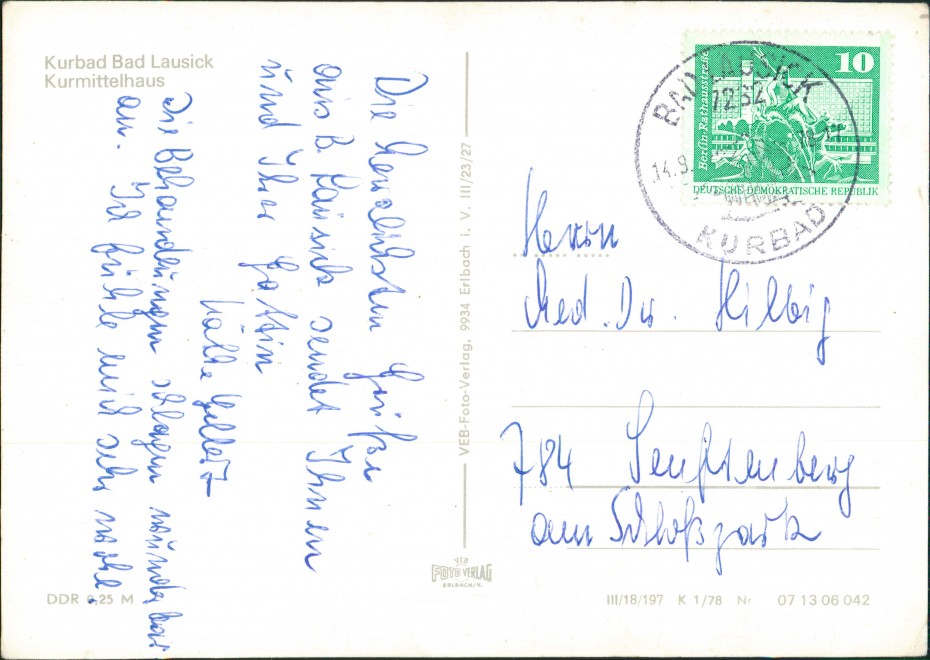 Kurbad Bad Lausick
Kurmittelhaus
Die herzlichsten Grüße
aus B. Lausick sendet Ihnen
und Ihrer Gattin
Käthe
Die Behandlungen schlagen wunderbar
an. Ich fühle mich sehr wohl.
DDR 0,25 M
VEB-Foto-Verlag, 9934 Erlbach i. V. III/23/27
VEB
FOTO VERLAG
ERLBACH/V.
10
Berlin · Rathausstraße
DEUTSCHE DEMOKRATISCHE REPUBLIK
BAD LAUSICK
7232
14.9.
KURBAD
Herrn
Med. Dr. Hilbig
784 Senftenberg
am Schloßpark
III/18/197 K 1/78 Nr 07 13 06 042